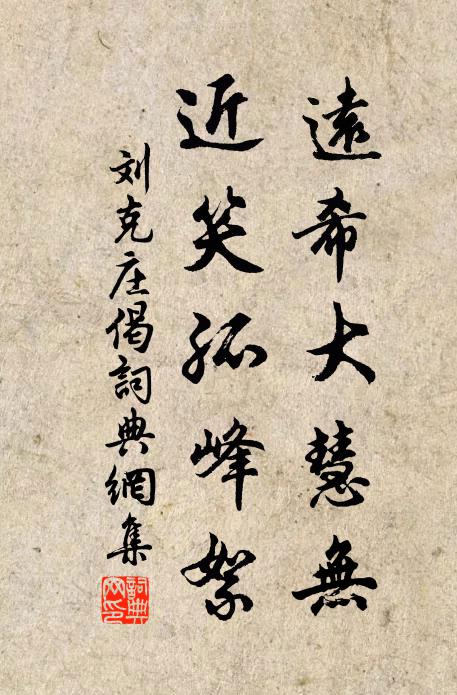 遠希大慧無
近笑孤峰絮
刘克庄偈詞典網集
詞典
网印